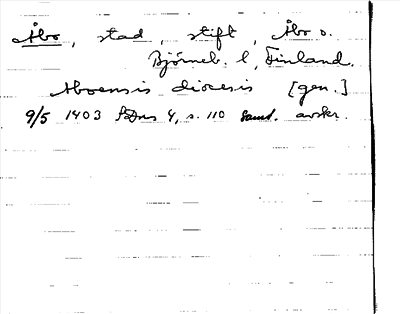 Åbo, stad, stift, Åbo o.
Björneb. l, Finland.
Aboensis diocesis [gen.]
9/5 1403 SDns 4, s. 110 Samt. avskr.